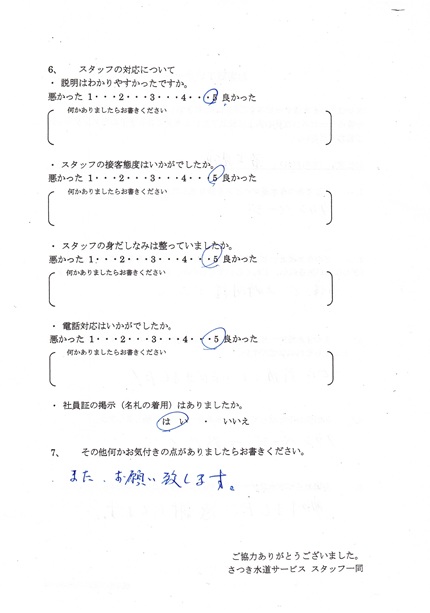 6、 スタッフの対応について
・ 説明はわかりやすかったですか。
悪かった 1・・・2・・・3・・・4・・・5 良かった
何かありましたらお書きください
・ スタッフの接客態度はいかがでしたか。
悪かった 1・・・2・・・3・・・4・・・5 良かった
何かありましたらお書きください
・ スタッフの身だしなみは整っていましたか。
悪かった 1・・・2・・・3・・・4・・・5 良かった
何かありましたらお書きください
・ 電話対応はいかがでしたか。
悪かった 1・・・2・・・3・・・4・・・5 良かった
何かありましたらお書きください
・ 社員証の掲示(名札の着用)はありましたか。
はい ・ いいえ
7、 その他何かお気付きの点がありましたらお書きください。
また、お願い致します。
ご協力ありがとうございました。
さつき水道サービス スタッフ一同